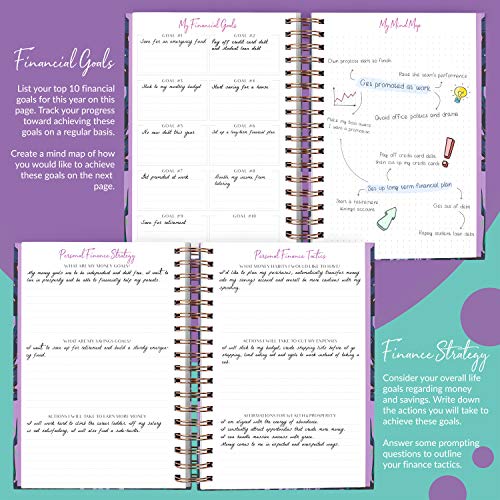 Financial Goals
List your top 10 financial
goals for this year on this
page. Track your progress
toward achieving these
goals on a regular basis.
Create a mind map of how
you would like to achieve
these goals on the next
page.
My Financial Goals
GOAL #1
GOAL #2
Save for an emergency fund
Pay off credit card debt
and student loan debt
GOAL #3
GOAL #4
Stick to my monthly budget
Start saving for a house
GOAL #5
GOAL #6
No new debt this year
Set up a long-term financial plan
GOAL #7
GOAL #8
Get promoted at work
Double my income from
tutoring
GOAL #9
GOAL #10
Save for retirement
My Mind Map
Raise the team's performance
Get promoted at work
Avoid office politics and drama
I want a promotion
Pay off credit card debt,
then cut up my credit cards
Set up long term financial plan
Start a retirement
savings account
Repay student loan debt
Personal Finance Strategy
WHAT ARE MY MONEY GOALS?
My money goals are to be independent and debt free. I want to
live in prosperity and be able to financially help my parents.
WHAT ARE MY SAVINGS GOALS?
I want to save up for retirement and build a sturdy emergen-
cy fund.
ACTIONS I WILL TAKE TO EARN MORE MONEY
I will work hard to climb the career ladder. If my salary
is not satisfactory, I will also find a side-hustle.
Personal Finance Tactics
WHAT MONEY HABITS I WOULD LIKE TO HAVE?
I'd like to plan my purchases, automatically transfer money
into my savings account and overall be more cautious with my
spending.
ACTIONS I WILL TAKE TO CUT MY EXPENSES
I will stick to my budget, create shopping lists before I go
shopping, limit eating out and cycle to work instead of taking a
cab.
AFFIRMATIONS FOR WEALTH & PROSPERITY
I am aligned with the energy of abundance.
I constantly attract opportunities that create more money.
I can handle massive success with grace.
Money comes to me in expected and unexpected ways.
Finance Strategy
Consider your overall life
goals regarding money
and savings. Write down
the actions you will take to
achieve these goals.
Answer some prompting
questions to outline
your finance tactics.